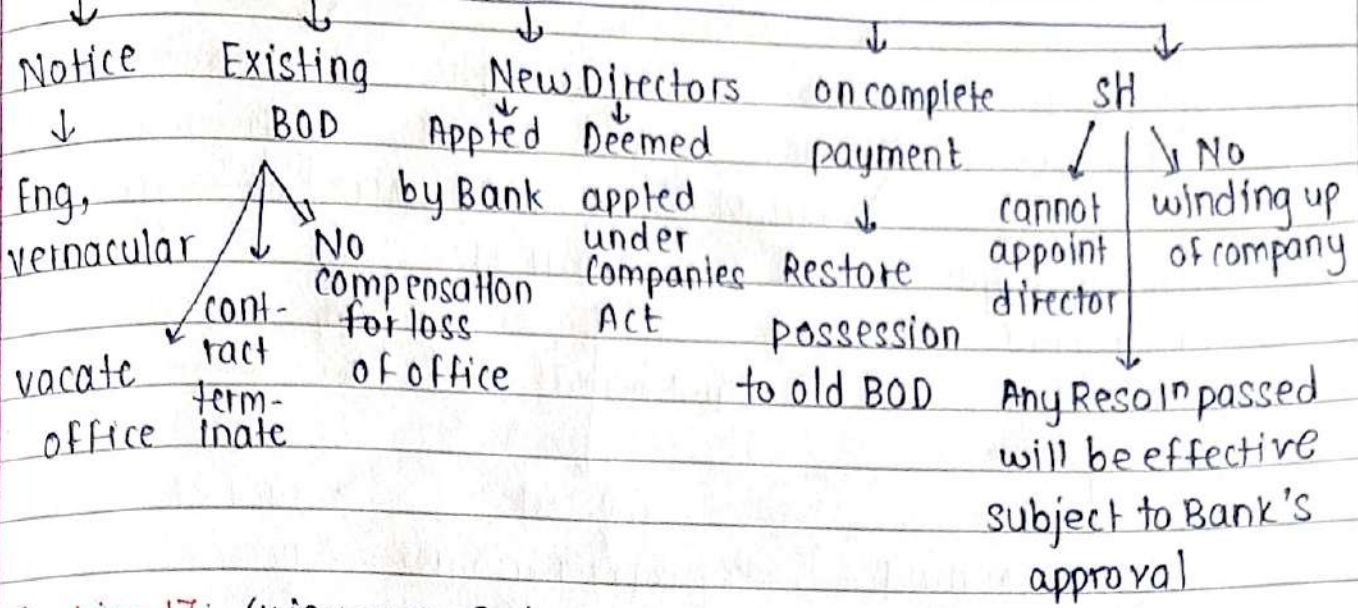 Notice
↓
Eng,
vernacular
Existing
BOD
vacate
office
cont-
ract
term-
inate
No
compensation
for loss
of office
New Directors
Appted
by Bank
Deemed
appted
under
Companies
Act
on complete
payment
↓
Restore
possession
to old BOD
SH
cannot
appoint
director
Any Resoln passed
will be effective
subject to Bank's
approval
No
winding up
of company
17: